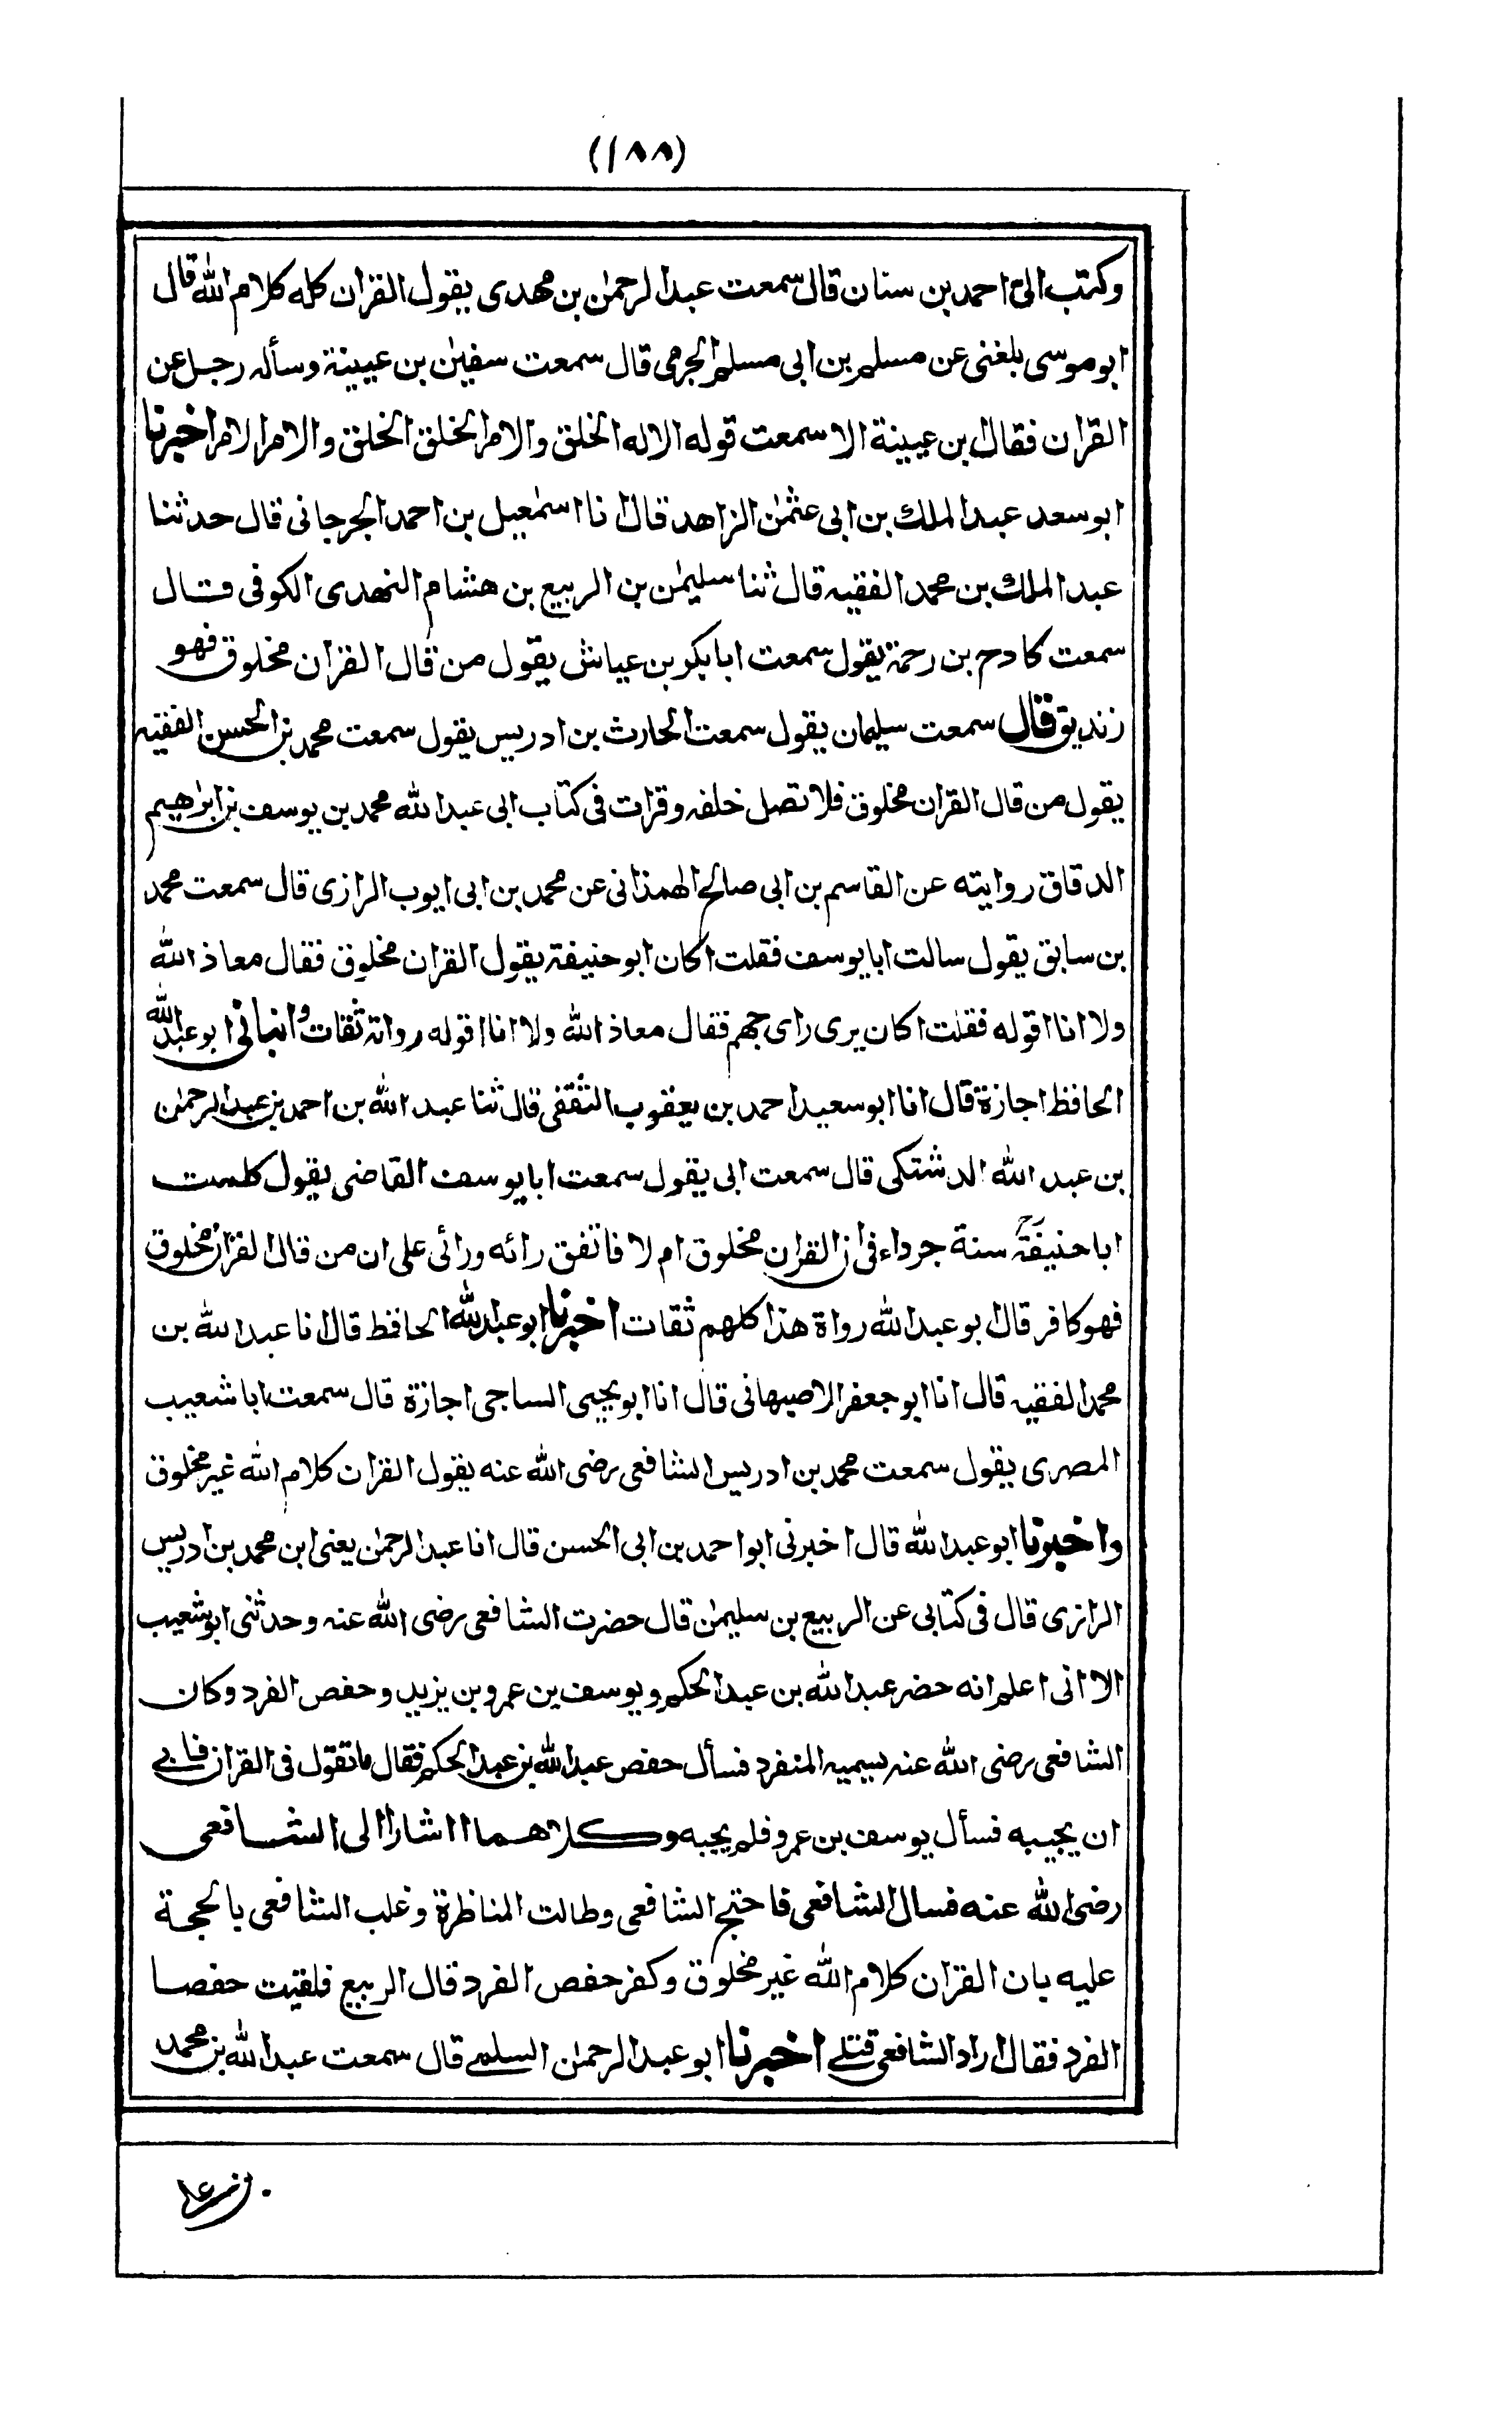 (١٨٨)
وكتب الى احمد بن سنان قال سمعت عبد الرحمٰن بن مهدى يقول القران كله كلام الله قال
ابو موسى بلغنى عن مسلم بن ابى مسلم الجرمى قال سمعت سفيٰن بن عيينة وسأله رجل عن
القران فقال بن عيينة الا سمعت قوله الاله الخلق والامر الخلق الخلق والامر الامر اخبرنا
ابو سعد عبد الملك بن ابى عثمٰن الزاهد قال انا اسمٰعيل بن احمد الجرجانى قال حدثنا
عبد الملك بن محمد الفقيه قال ثنا سليمٰن بن الربيع بن هشام النهدى الكوفى قال
سمعت كادح بن رحمة يقول سمعت ابا بكر بن عياش يقول من قال القران مخلوق فهو
زنديق قال سمعت سليمان يقول سمعت الحارث بن ادريس يقول سمعت محمد بن الحسن الفقيه
يقول من قال القران مخلوق فلا تصل خلفه وقرات فى كتاب ابى عبد الله محمد بن يوسف بن ابراهيم
الدقاق روايته عن القاسم بن ابى صالح الهمذانى عن محمد بن ابى ايوب الرازى قال سمعت محمد
بن سابق يقول سالت ابا يوسف فقلت اكان ابو حنيفة يقول القران مخلوق فقال معاذ الله
ولا انا اقوله فقلت اكان يرى راى جهم فقال معاذ الله ولا انا اقوله رواته ثقات وانبانى ابو عبد الله
الحافظ اجازة قال انا ابو سعيد احمد بن يعقوب الثقفى قال ثنا عبد الله بن احمد بن عبد الرحمٰن
بن عبد الله الدشتكى قال سمعت ابى يقول سمعت ابا يوسف القاضى يقول كلمت
ابا حنيفة رح سنة جرداء فى ان القران مخلوق ام لا فاتفق رائه ورائى على ان من قال القران مخلوق
فهو كافر قال ابو عبد الله رواة هذا كلهم ثقات اخبرنا ابو عبد الله الحافظ قال انا عبد الله بن
محمد الفقيه قال انا ابو جعفر الاصبهانى قال انا ابو يحيى الساجى اجازة قال سمعت ابا شعيب
المصرى يقول سمعت محمد بن ادريس الشافعى رضى الله عنه يقول القران كلام الله غير مخلوق
واخبرنا ابو عبد الله قال اخبرنى ابو احمد بن ابى الحسن قال انا عبد الرحمٰن يعنى ابن محمد بن ادريس
الرازى قال فى كتابى عن الربيع بن سليمٰن قال حضرت الشافعى رضى الله عنه وحدثنى ابو شعيب
الا انى اعلم انه حضر عبد الله بن عبد الحكم ويوسف بن عمرو بن يزيد وحفص الفرد وكان
الشافعى رضى الله عنه يسميه المنفرد فسأل حفص عبد الله بن عبد الحكم فقال ما تقول فى القران فابى
ان يجيبه فسأل يوسف بن عمرو فلم يجبه وكلاهما اشارا الى الشافعى
رضى الله عنه فسال الشافعى فاحتج الشافعى وطالت المناظرة وغلب الشافعى بالحجة
عليه بان القران كلام الله غير مخلوق وكفر حفص الفرد قال الربيع فلقيت حفصا
الفرد فقال اراد الشافعى قتلى اخبرنا ابو عبد الرحمٰن السلمى قال سمعت عبد الله بن محمد